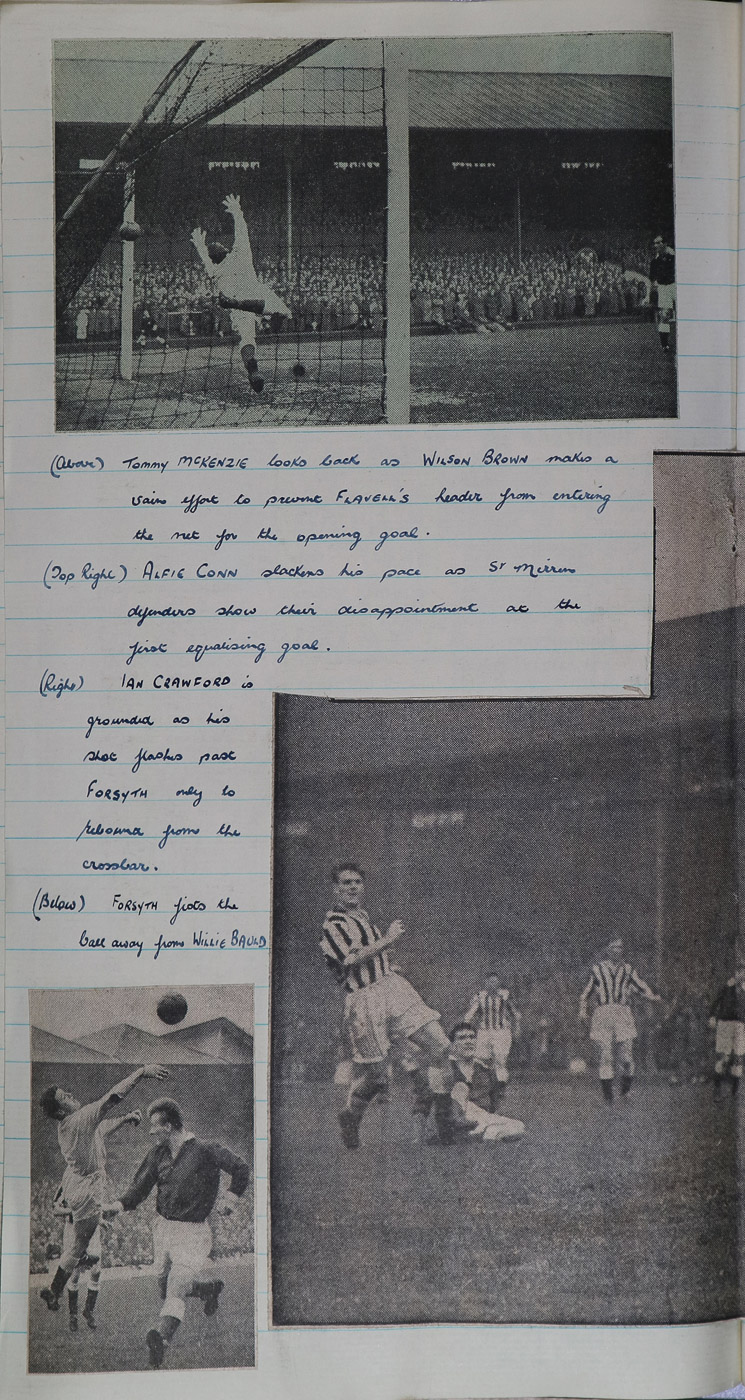 (Above) Tommy McKENZIE looks back as WILSON BROWN makes a
vain effort to prevent FLAVELL'S header from entering
the net for the opening goal.
(Top Right) ALFIE CONN slackens his pace as St Mirren
defenders show their disappointment at the
first equalising goal.
(Right) IAN CRAWFORD is
grounded as his
shot flashes past
FORSYTH only to
rebound from the
crossbar.
(Below) FORSYTH fists the
ball away from WILLIE BAULD